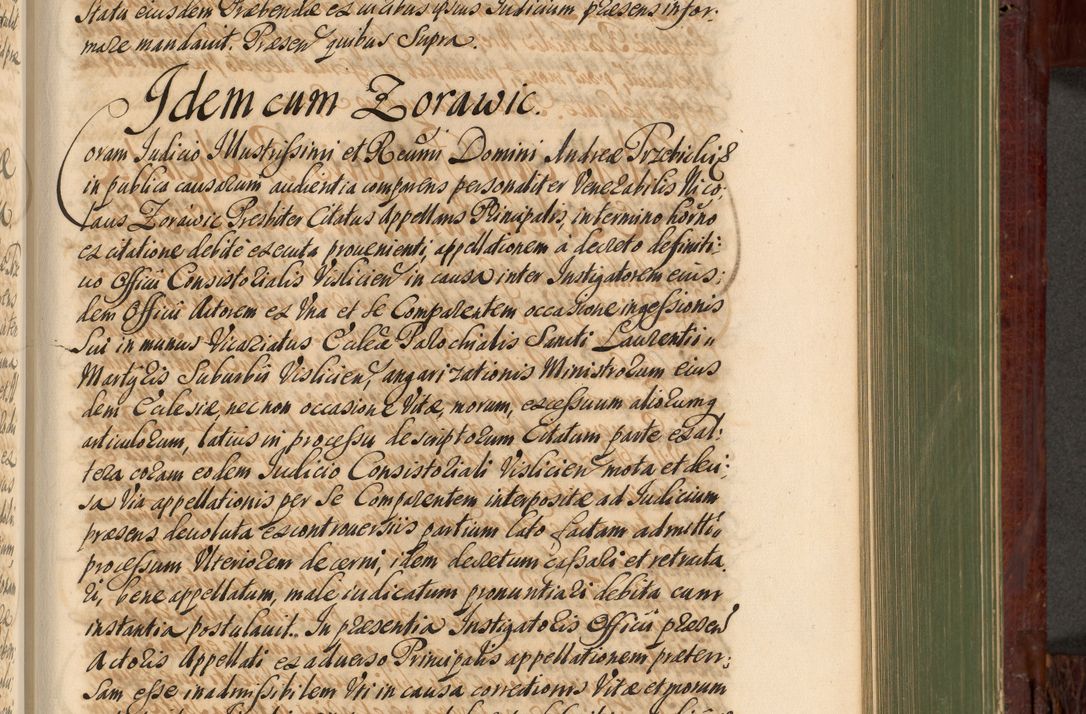 Statu eiusdem Præbendæ ex incibus ipsius Iudicium præsens infor:
mare mandauit. Præsen quibus Supra.
Idem cum Zorawic.
Coram Iudicio Illustrissimi et Reumi Domini Andreæ Trzebicki &
in publica causarum audientia comparens personaliter Venerabilis Nico:
laus Zorawic Presbiter Citatus Appellans Principalis, in termino horno
ex citatione debite executa proueniente, appellationem à decreto definiti:
uo Officii Consistorialis Vislicien in causa inter Instigatorem eius:
dem Officii Actorem ex Vna et se Comparentem occasione ingessionis
Sui in munus Vicariatus Eccleæ Parochialis Sancti Laurentii
Martyris Suburbii Vislicien, angarizationis Ministrorum eius
dem Ecclesiæ, nec non occasione Vitæ, morum, excessuum aliorumq
articulorum, latius in processu descriptorum Citatum parte ex al:
tera coram eodem Iudicio Consistoriali Vislicien mota et deci:
sa Via appellationis per se Comparentem interpositæ ad Iudicium
præsens deuoluta ex controuersiis partium lato factam admitti
processum Vlteriorem decerni, idem decretum cassari et retracta
ri, bene appellatum, male iudicatum pronuntiari debita cum
instantia postulauit. In præsentia Instigatoris Officii præsen
Actoris Appellati ex aduerso Principalis appellationem præten:
sam esse inadmissibilem Vti in causa correctionis Vitæ et morum